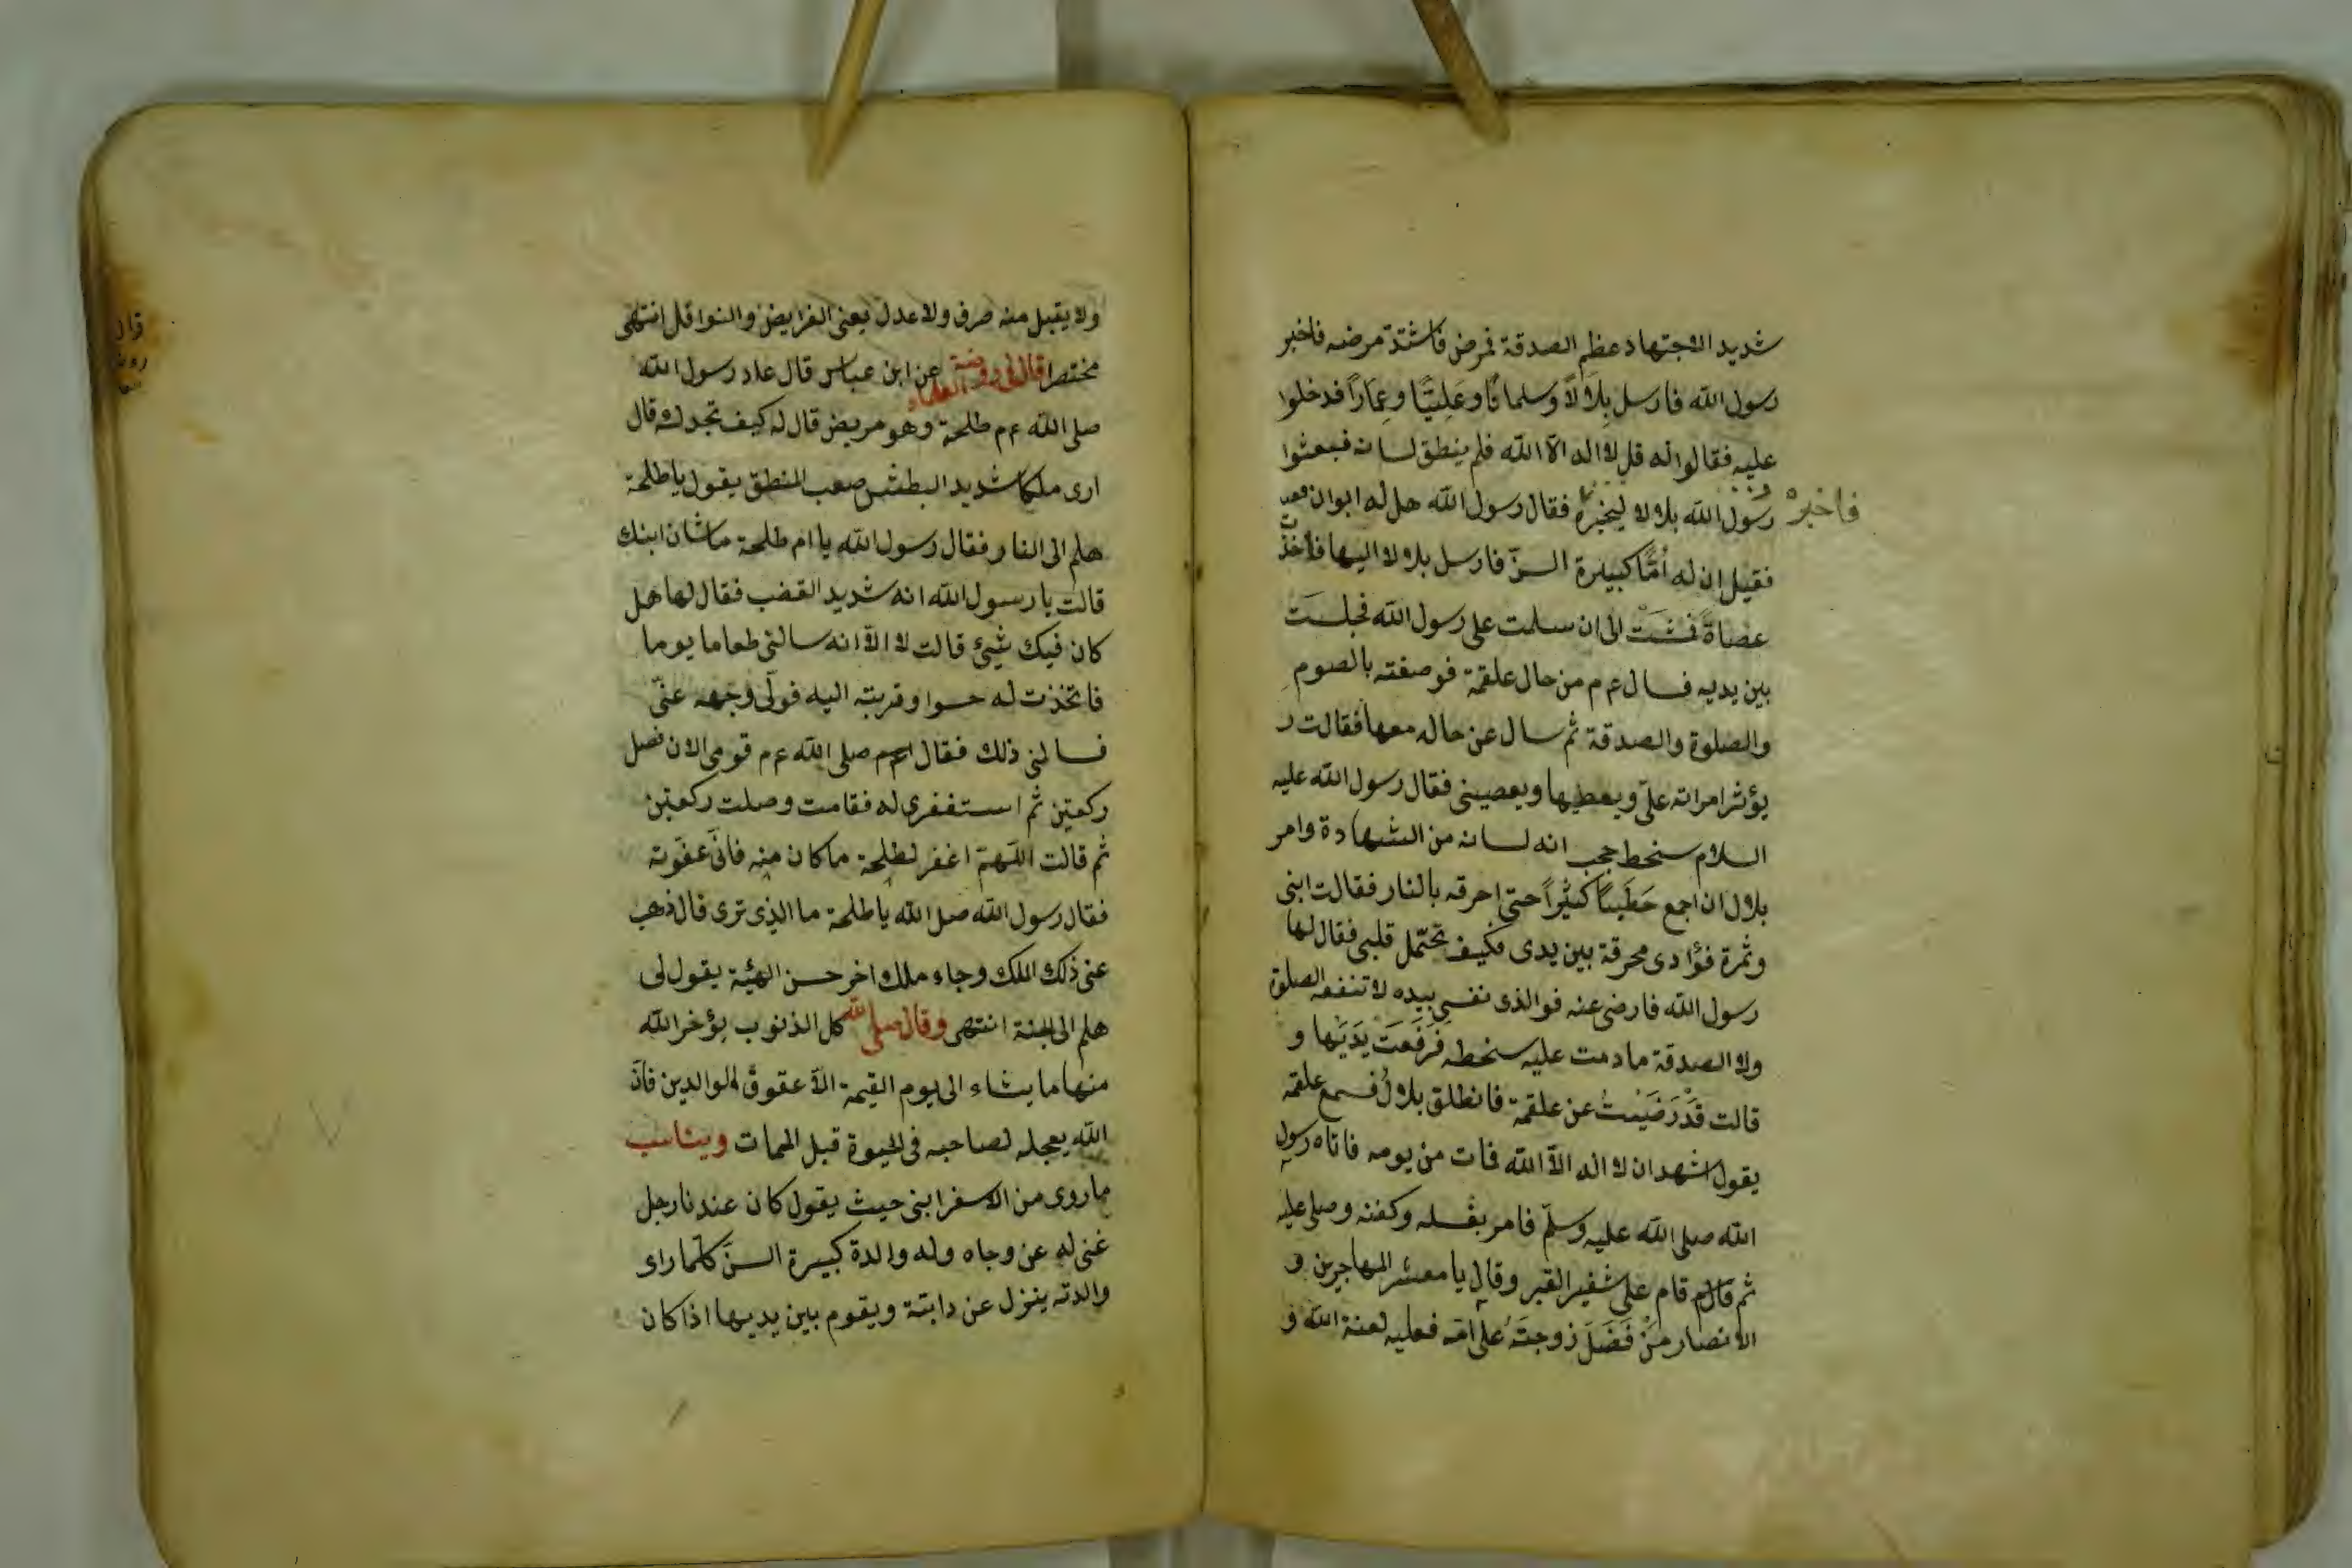 شديد الاجتهاد عظم الصدقة فمرض فاشتدّ مرضه فاخبر
رسول الله فارسل بِلَالاً وسلمانًا وعَلِيًّا وعمّاراً فدخلوا
عليه فقالوا له قل لا اله الا الله فلم ينطق لسانه فبعثوا
رسول الله بلالا ليخبره فقال رسول الله هل له ابوان
فاخبره
فقيل ان له امًّا كبيرة السنّ فارسل بلالا اليها فاخذت
عصاة فمشت الى ان سلمت على رسول الله فجلست
بين يديه فسال عم من حال علقمة فوصفته بالصوم
والصلوة والصدقة ثم سال عن حاله معها فقالت
يؤثر امراته علىّ ويعطيها ويعصيني فقال رسول الله عليه
السلام سخط حجب انه لسانه من الشهادة وامر
بلال ان اجمع حَطَبًا كثيراً حتى احرقه بالنار فقالت ابنى
وثمرة فؤادى محرقة بين يدى فكيف تحتمل قلبى فقال لها
رسول الله فارضى عنه فوالذى نفسى بيده لا تنفعه الصلوة
ولا الصدقة مادمت عليه سخطه فَرَفَعَتْ يَدَيْها و
قالت قَدْ رَضَيْتُ عن علقمة فانطلق بلالُ فسمع علقمة
يقول اشهد ان لا اله الا الله فمات من يومه فاتاه رسول
الله صلى الله عليه وسلّم فامر بغسله وكفنه وصلى عليه
ثم قام على شفير القبر وقال يا معشر المهاجرين و
الانصار مَنْ فَضَلَ زوجتَهُ على امّه فعليه لعنة الله و
ولا يقبل منه صرف ولا عدل يعنى الفرايض والنوافل انتهى
مختصرا قال فى روضة العلماء عن ابن عباس قال عاد رسول الله
صلى الله عم طلحة وهو مريض قال له كيف تجدك قال
ارى ملكا شديد البطش صعب المنطق يقول يا طلحة
هلم الى النار فقال رسول الله يا ام طلحة ما شان ابنك
قالت يا رسول الله انه شديد الغضب فقال لها هل
كان فيك شيئ قالت لا الا انه سالنى طعاما يوما
فاتخذت له حسوا وقربته اليه فولّى وجهه عنّى
فسالنى ذلك فقال صلى الله عم قومى الان فصل
ركعتين ثم استغفرى له فقامت وصلت ركعتين
ثم قالت اللهمّ اغفر لطلحة ما كان منه فانّى عفوته
فقال رسول الله صلى الله يا طلحة ما الذى ترى قال ذهب
عنى ذلك الملك وجاء ملك اخر حسن الهيئة يقول لى
هلم الى الجنة انتهى وقال صلى الله كل الذنوب يؤخر الله
منها ما يشاء الى يوم القيمة الا عقوق الوالدين فانّ
الله يعجله لصاحبه فى الحيوة قبل الممات ويناسب
ماروى من الاسفرابنى حيث يقول كان عندنا رجل
غنى له عز وجاه وله والدة كبيرة السنّ كلّما راى
والدته ينزل عن دابتة ويقوم بين يديها اذا كان
قال